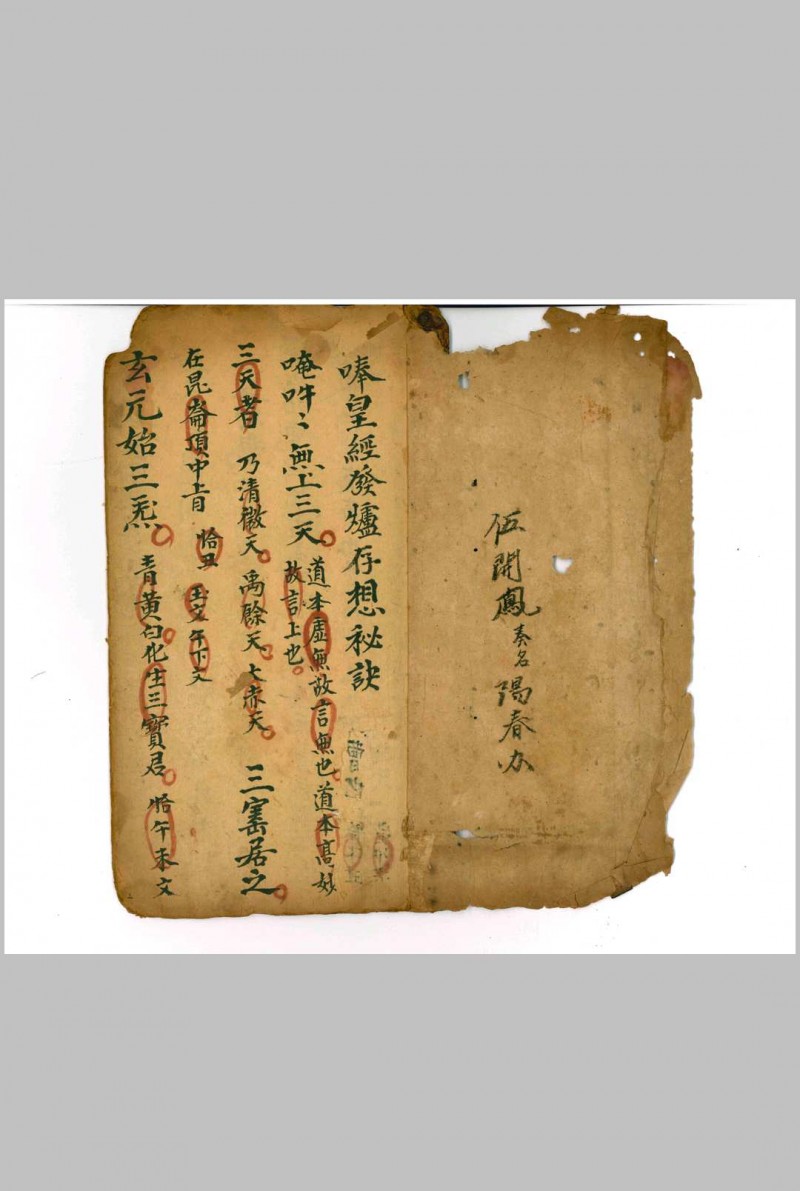 伍開鳳奏名陽春办
唪皇經發爐存想秘訣
唵吽〻無上三天。道本虛無故言無也。道本髙妙
故言上也。
三天者 乃清微天。禹餘天。大赤天。 三寳居之。
在昆崙頂中上目 恰丑 玉文午下文
玄元始三炁。青黃白化生三寶君。恰午未文